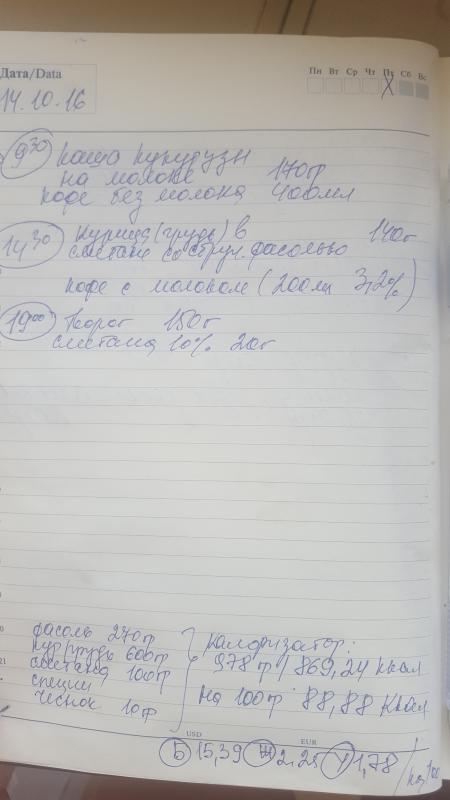 Дата/Data
Пн Вт Ср Чт Пт Сб Вс
14.10.16
9³⁰ Каша кукурузн
на молоке 170гр
кофе без молока 400мл
14³⁰ Курица (грудь) в 140г
сметане со струч. фасолью
кофе с молоком (200мл 3,2%)
19⁰⁰ Творог 150г
сметана 10% 20г
фасоль 270гр
кур грудь 600гр
сметана 100гр
специи
чеснок 10гр
Калоризатор:
978 гр / 869,24 ккал
на 100гр 88,88 Ккал
21
USD EUR
Б 15,39 Ж 2.25 У 1,78 / на 100